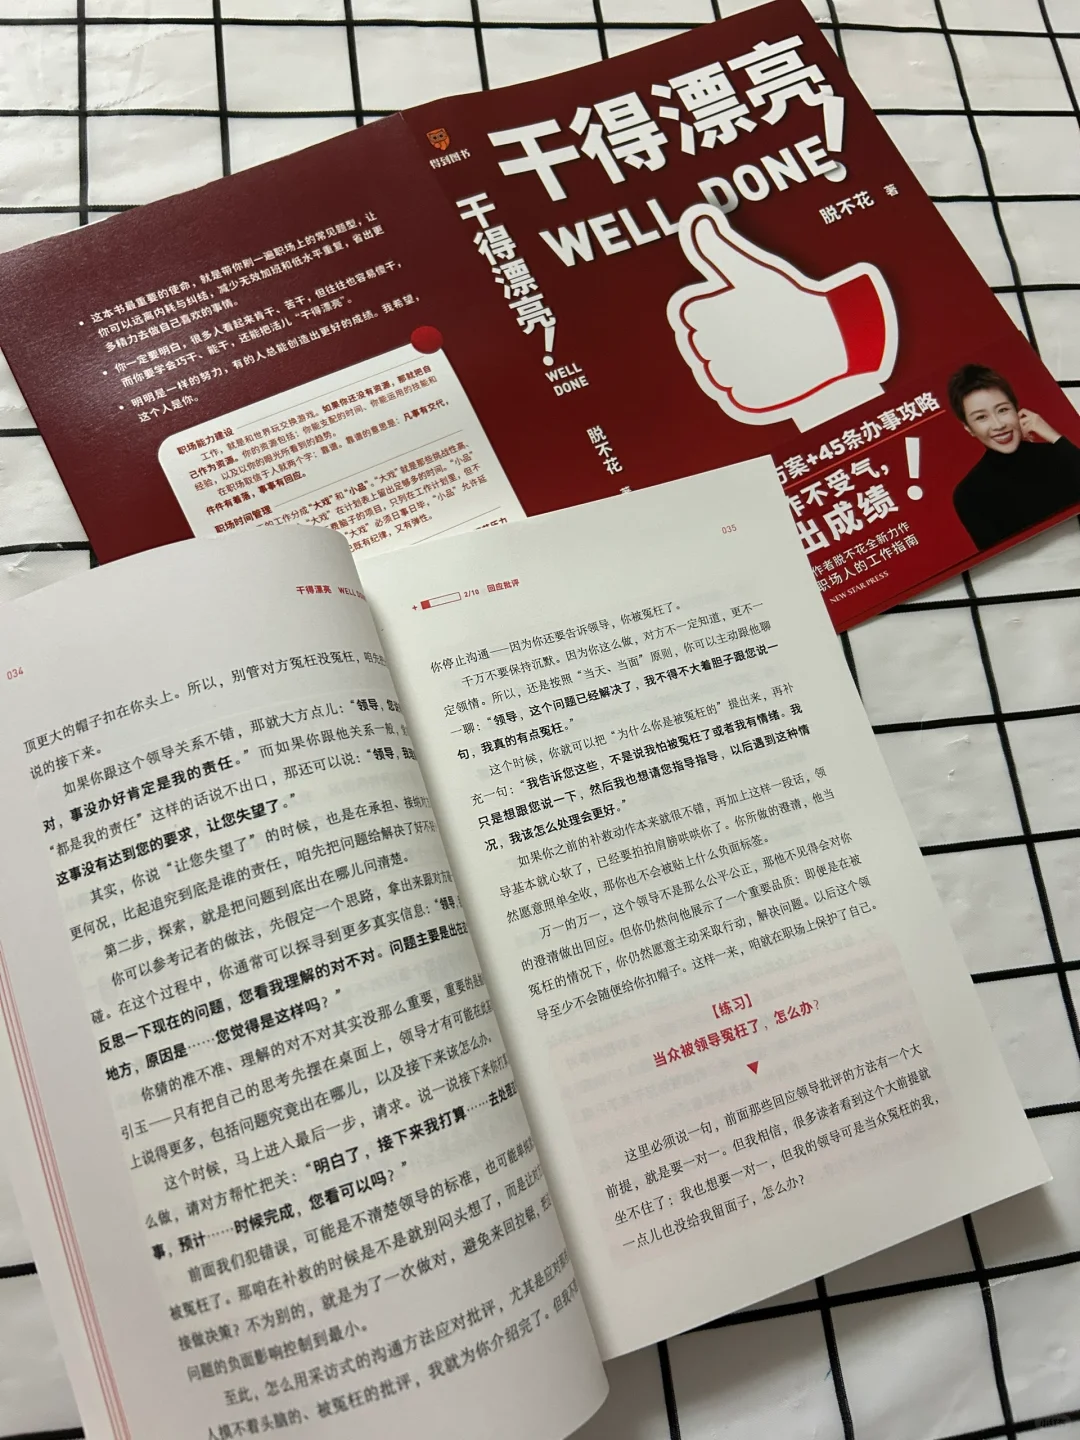 得到图书
干得漂亮！
WELL DONE
脱不花 著
干得漂亮！
WELL
DONE
脱不花
• 这本书最重要的使命，就是带你刷一遍职场上的常见题型，让
你可以远离内耗与纠结，减少无效加班和低水平重复，省出更
多精力去做自己喜欢的事情。
• 你一定要明白，很多人看起来肯干、苦干，但往往也容易傻干，
而你要学会巧干、能干，还能把活儿“干得漂亮”。
• 明明是一样的努力，有的人总能创造出更好的成绩。我希望，
这个人是你。
职场能力建设
工作，就是和世界玩交换游戏。如果你还没有资源，那就把自
己作为资源。你的资源包括：你能支配的时间、你能运用的技能和
经验，以及以你的眼光所看到的趋势。
在职场取信于人就两个字：靠谱。靠谱的意思是：凡事有交代，
件件有着落，事事有回应。
职场时间管理
的工作分成“大戏”和“小品”。“大戏”就是那些挑战性高、
费脑子的项目，只列在工作计划里，但不
“大戏”在计划表上留出足够多的时间。“小品”
“大戏”必须日事日毕，“小品”允许延
既有纪律，又有弹性。
方案+45条办事攻略
作不受气，
出成绩！
作者脱不花全新力作
职场人的工作指南
NEW STAR PRESS
034
干得漂亮 WELL DON
顶更大的帽子扣在你头上。所以，别管对方冤枉没冤枉，咱先
说的接下来。
如果你跟这个领导关系不错，那就大方点儿：“领导，您
对，事没办好肯定是我的责任。”而如果你跟他关系一般，
“都是我的责任”这样的话说不出口，那还可以说：“领导，
这事没有达到您的要求，让您失望了。”
其实，你说“让您失望了”的时候，也是在承担、接纳
更何况，比起追究到底是谁的责任，咱先把问题给解决了好不
第二步，探索，就是把问题到底出在哪儿问清楚。
你可以参考记者的做法，先假定一个思路，拿出来跟对方
碰。在这个过程中，你通常可以探寻到更多真实信息：“领导，
反思一下现在的问题，您看我理解的对不对。问题主要是出在
地方，原因是……您觉得是这样吗？”
你猜的准不准、理解的对不对其实没那么重要，重要的是
引玉——只有把自己的思考先摆在桌面上，领导才有可能在此
上说得更多，包括问题究竟出在哪儿，以及接下来该怎么办。
这个时候，马上进入最后一步，请求。说一说接下来你打算
么做，请对方帮忙把关：“明白了，接下来我打算……去处理
事，预计……时候完成，您看可以吗？”
前面我们犯错误，可能是不清楚领导的标准，也可能单纯
被冤枉了。那咱在补救的时候是不是就别闷头想了，而是让
接做决策？不为别的，就是为了一次做对，避免来回拉锯，把
问题的负面影响控制到最小。
至此，怎么用采访式的沟通方法应对批评，尤其是应对那
人摸不着头脑的、被冤枉的批评，我就为你介绍完了。但我不
2/10 回应批评
035
你停止沟通——因为你还要告诉领导，你被冤枉了。
千万不要保持沉默。因为你这么做，对方不一定知道，更不一
定领情。所以，还是按照“当天、当面”原则，你可以主动跟他聊
一聊：“领导，这个问题已经解决了，我不得不大着胆子跟您说一
句，我真的有点冤枉。”
这个时候，你就可以把“为什么你是被冤枉的”提出来，再补
充一句：“我告诉您这些，不是说我怕被冤枉了或者我有情绪。我
只是想跟您说一下，然后我也想请您指导指导，以后遇到这种情
况，我该怎么处理会更好。”
如果你之前的补救动作本来就很不错，再加上这样一段话，领
导基本就心软了，已经要拍拍肩膀哄哄你了。你所做的澄清，他当
然愿意照单全收，那你也不会被贴上什么负面标签。
万一的万一，这个领导不是那么公平公正，那他不见得会对你
的澄清做出回应。但你仍然向他展示了一个重要品质：即便是在被
冤枉的情况下，你仍然愿意主动采取行动，解决问题。以后这个领
导至少不会随便给你扣帽子。这样一来，咱就在职场上保护了自己。
【练习】
当众被领导冤枉了，怎么办？
这里必须说一句，前面那些回应领导批评的方法有一个大
前提，就是要一对一。但我相信，很多读者看到这个大前提就
坐不住了：我也想要一对一，但我的领导可是当众冤枉的我，
一点儿也没给我留面子，怎么办？